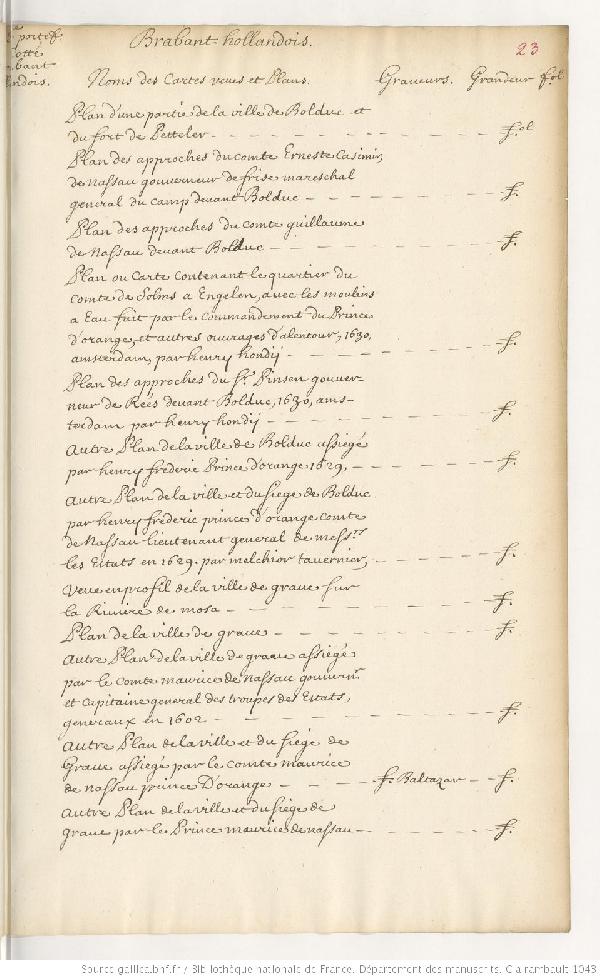 portef.
cotté
bant
landois.
Brabant hollandois.
23
Noms des Cartes veues et Plans. Graveurs. Grandeur fol
Plan d'une partie de la ville de Bolduc et
du fort de Petteler - - - - - - - - fol
Plan des approches du comte Erneste Casimir,
de Nassau gouverneur de frise mareschal
general du camp devant Bolduc - - - - - f.
Plan des approches du comte guillaume
de Nassau devant Bolduc - - - - - - f.
Plan ou Carte Contenant le quartier du
Comte de Solms a Engelen, avec les moulins
a Eau fait par le Commandement du Prince
d'orange, et autres ouvrages d'alentour, 1630,
amsterdam, par henry hondij - - - - - f.
Plan des approches du Sr. Pinsen gouver-
neur de Rées devant Bolduc, 1630, ams-
terdam par henry hondij - - - - - - f.
Autre Plan de la ville de Bolduc assiegé
par henry fréderic Prince d'orange 1629, - - - - f.
Autre Plan de la ville et du siege de Bolduc
par henry fréderic prince d'orange comte
de Nassau lieutenant general de messrs
les Estats en 1629. par melchior tavernier, - - - - f.
Veue en profil de la ville de grave sur
la Riviere de mosa - - - - - - - f.
Plan de la ville de grave - - - - - - f.
Autre Plan de la ville de grave assiegé
par le Comte maurice de Nassau gouvern.r
et Capitaine general des troupes des Estats,
generaux en 1602 - - - - - - - f.
Autre Plan de la ville et du siege de
Grave assiegé par le Comte maurice
de nassau prince D'orange - - - - f. Baltazar - - f.
Autre Plan de la ville et du siege de
grave par le Prince maurice de nassau - - - - - f.
Source gallica.bnf.fr / Bibliothèque nationale de France. Département des manuscrits. Clairambault 1043